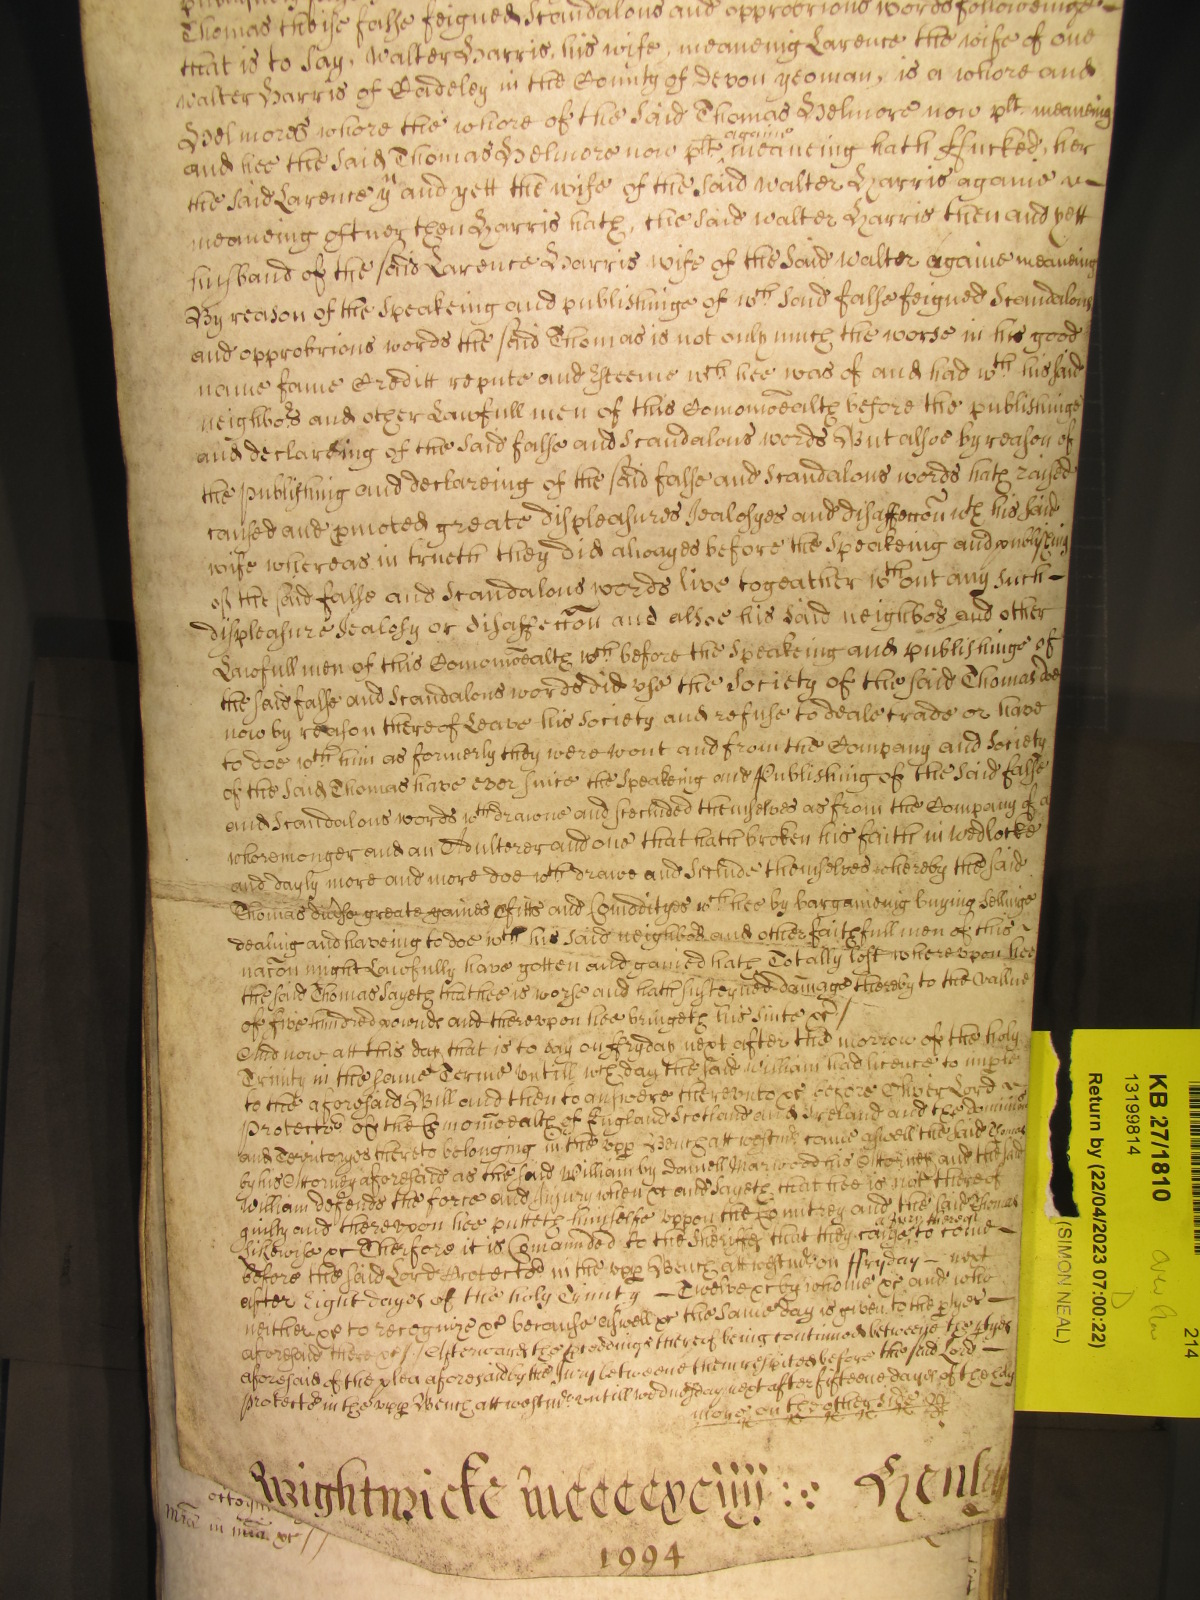 Thomas theise false feigned Scandalous and opprobrious words followeinge
that is to say, Walter Harris, his wife, meaneing Larence the wife of one
Walter Harris of Cadeley in the County of Devon yeoman, is a whore and
Helmores whore the whore of the said Thomas Helmore now plt meaneing
and hee the said Thomas Helmore now plt againe meaneing hath ffucked, her
the said Larence yn and yett the wife of the said Walter Harris againe
meaneing oftner then Harris hath, the said Walter Harris then and yett
husband of the said Larence Harris wife of the said Walter againe meaneing
By reason of the speakeing and publishinge of wch said false feigned Scandalous
and opprobrious words the said Thomas is not only much the worse in his good
name fame Creditt repute and Esteeme wch hee was of and had wth his said
neighbors and other Lawfull men of this Comonwealth before the publishinge
and declareing of the said false and Scandalous words But alsoe by reason of
the publishing and declareing of the said false and Scandalous words hath raised
caused and pmoted greate displeasures Jealosyes and disaffeccon wth his said
wife whereas in trueth they did alwayes before the speakeing and publishing
of the said false and Scandalous words live togeather wthout any such
displeasure Jealosy or disaffeccon and alsoe his said neighbors and other
Lawfull men of this Comonwealth wch before the speakeing and publishinge of
the said false and Scandalous words did use the Society of the said Thomas doe
now by reason thereof Leave his Society and refuse to deale trade or have
to doe wth him as formerly they were wont and from the Company and Society
of the said Thomas have ever since the speakeing and Publishing of the said false
and Scandalous words wthdrawne and secluded themselves as from the Company of a
whoremonger and an Adulterer and one that hath broken his faith in wedlocke
and dayly more and more doe wthdrawe and Seclude themselves whereby the said
Thomas divrse greate gaines pfitts and Comodityes wch hee by bargaineing buying sellinge
dealing and haveing to doe wth his said neighbors and other faithfull men of this
nacon might Lawfully have gotten and gained hath Totally lost whereupon hee
the said Thomas sayeth that hee is worse and hath susteyned damage thereby to the vallue
of five hundred pounds and thereupon hee bringeth his suite &c /
And now att this day that is to say on ffryday next after the morrow of the holy
Trinity in the same Terme untill wch day the said William had licence to imple
to the aforesaid Bill and then to answere thereunto &c before Oliver Lord
Protector of the Comonwealth of England Scotland and Ireland and the dominions
and Territoryes thereto belonging in the upp Bench att westmr come aswell the said Thomas
by his Attorney aforesaid as the said William by Daniell Marwood his Attorney and the said
William defends the force and Injury when &c and sayeth that hee is not thereof
guilty and thereupon hee putteth himselfe uppon the Countrey and the said Thomas
likewise &c Therfore it is Comanded to the Sheriffe that they cause a Jury thereof to come
before the said Lord Protector in the upp Bench att westmr on ffryday next
after Eight dayes of the holy Trinity Twelve &c by whome &c and who
neither &c to recognize &c because aswell &c the same day is given to the ptyes
aforesaid there &c // Afterwards the pceedings thereof being continued betweene the ptyes
aforesaid of the plea aforesaid by the Jury betweene them respited before the said Lord
Protector in the upp Bench att westmr untill wednesday next after fifteene dayes of the holy
more on the other side
Wightwicke mccccxciiij Henley
octogin
mia in mia &c //
1994
KB 27/1810
13199814
Return by (22/04/2023 07:00:22)
(SIMON NEAL)
D
214